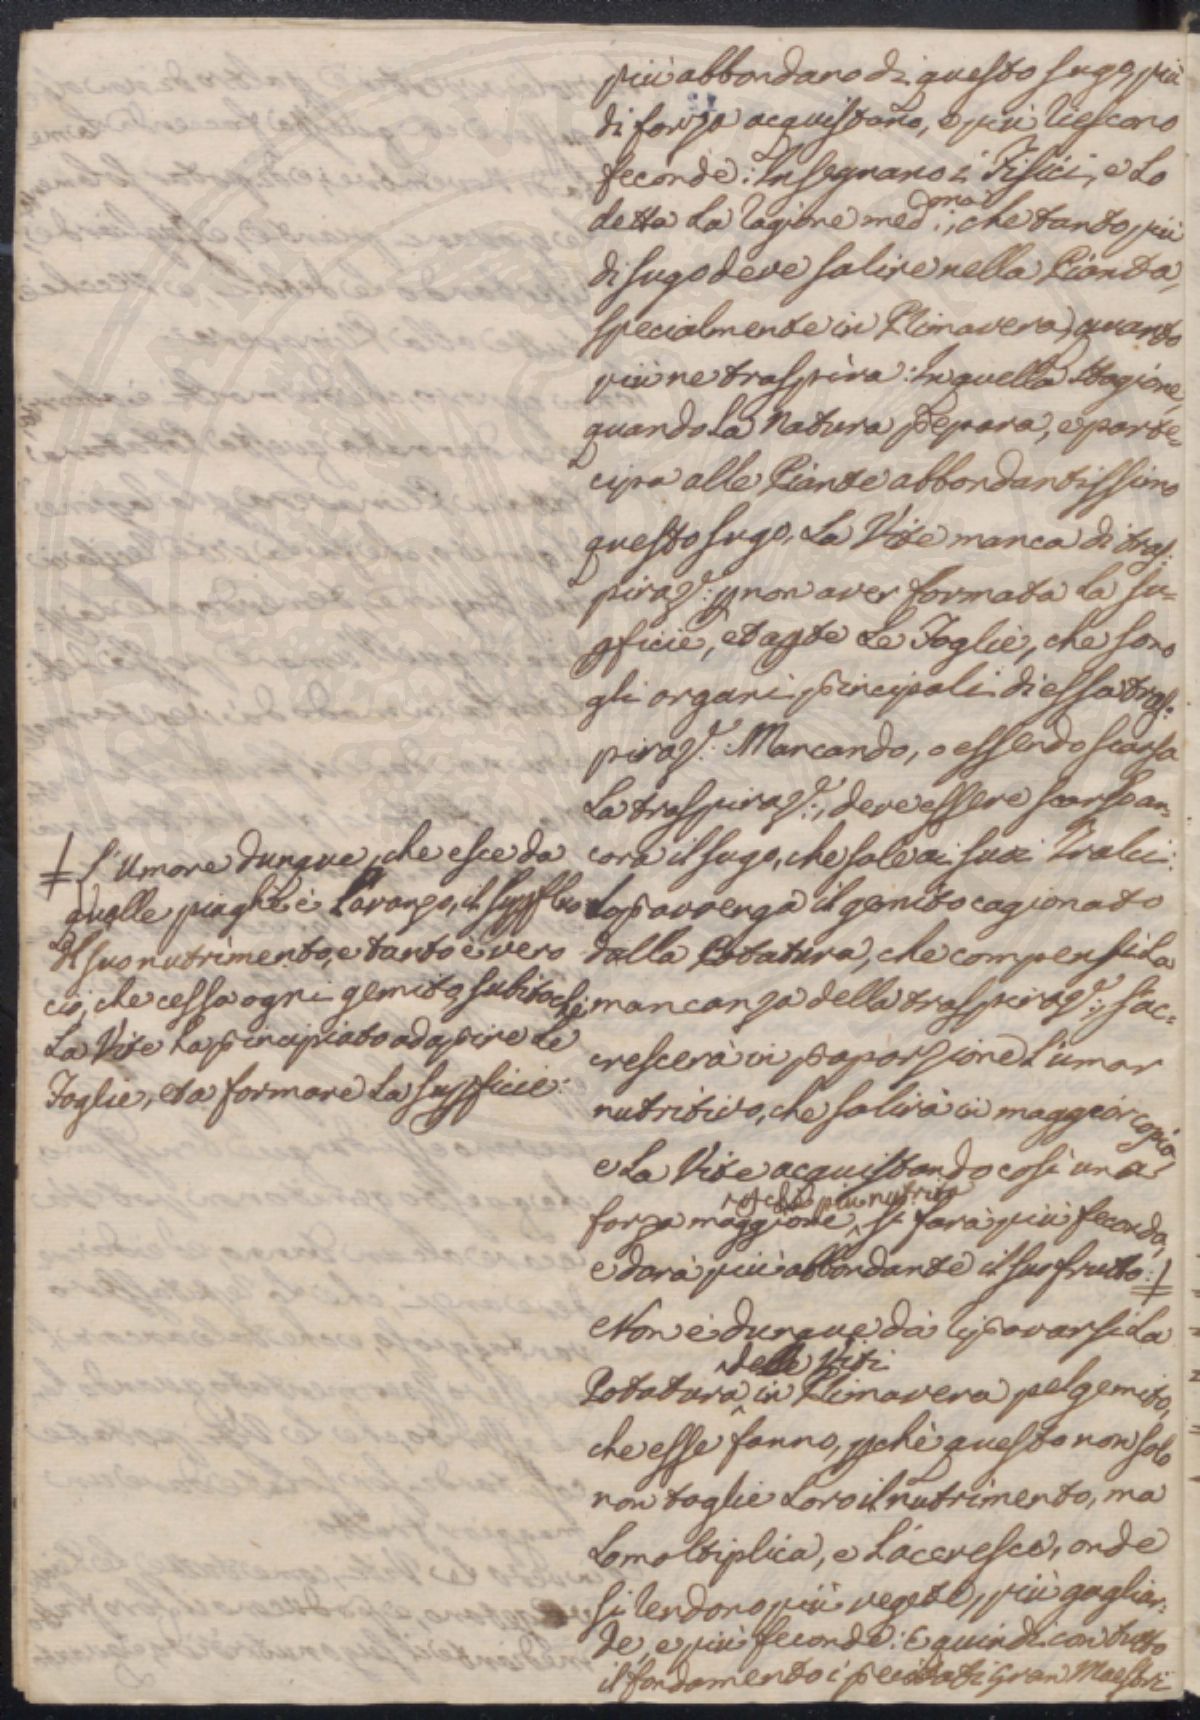 più abbondano di questo sugo, più
di forza acquistano, e più riescono
feconde: Insegnano i Fisici, e Lo
detta La ragione med.ma:, che tanto più
di sugo deve salire nella Pianta,
specialmente in Primavera, quanto
più ne traspira: In quella Stagione,
quando La Natura prepara, e parte=
cipa alle Piante abbondantissimo
questo sugo, La Vite manca di tras=
piraz.e: p non aver formata La su=
pficie, et apte Le Foglie, che sono
gli organi principali di essa tras=
piraz.e: Mancando, o essendo scarsa
La traspiraz.e:, deve essere scarso an=
cora il sugo, che sale ai suoi Tralci:
Sopravvenga il gemito cagionato
dalla Potatura, che compensi La
mancanza della traspiraz.e:, s'ac=
crescerà in proporzione L'umor
nutritivo, che salirà in maggior copia,
e La Vite acquistando così una
forza maggiore, perchè più nutrita
si farà più feconda,
e darà più abbondante il suo frutto: ‡
Non è dunque da riprovarsi La
Potatura delle Viti in Primavera pel gemito,
che esse fanno, pchè questo non solo
non toglie Loro il nutrimento, ma
Lo moltiplica, e L'accresce, onde
si rendono più vegete, più gagliar=
de, e più feconde: E quindi con tutto
il fondamento i precitati Gran Maestri
‡ L'Umore dunque, che esce da
quelle piaghe è L'avanzo, il supfluo
del suo nutrimento, e tanto è vero
ciò, che cessa ogni gemito, subito che
La Vite ha principiato ad aprire Le
Foglie, et a formare La supficie: